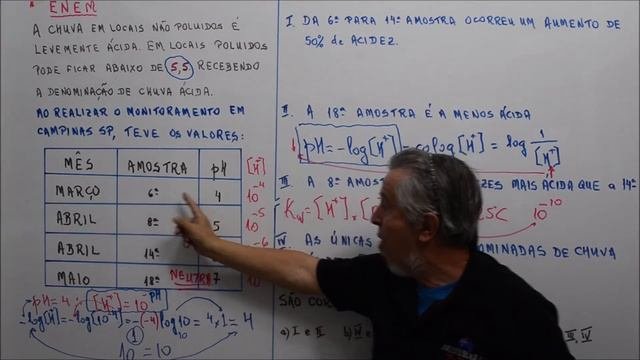 * ENEM
A CHUVA EM LOCAIS NÃO POLUIDOS É
LEVEMENTE ÁCIDA. EM LOCAIS POLUIDOS
PODE FICAR ABAIXO DE 5,5. RECEBENDO
A DENOMINAÇÃO DE CHUVA ÁCIDA.
AO REALIZAR O MONITORAMENTO EM
CAMPINAS SP, TEVE OS VALORES:
MÊS AMOSTRA pH [H⁺]
MARÇO 6ª 4 10⁻⁴
ABRIL 8ª 5 10⁻⁵
ABRIL 14ª 10⁻⁶
MAIO 18ª NEUTRA 7 10
pH = 4 ∴ [H⁺] = 10⁻ᵖᴴ
-log[H⁺] = -log[10⁻⁴] = -(-4) log10 = 4 x 1 = 4
10¹ = 10
I. DA 6ª PARA 14ª AMOSTRA OCORREU UM AUMENTO DE
50% de ACIDEZ.
II. A 18ª AMOSTRA É A MENOS ÁCIDA
pH = -log[H⁺] = colog[H⁺] = log 1/[H⁺]
III. A 8ª AMOSTRA ZES MAIS ACIDA que A 14ª
Kw = [H⁺] x [ 5C 10⁻¹⁰
IV AS ÚNICAS MINADAS DE CHUVA
SÃO COR
a) I e II b)